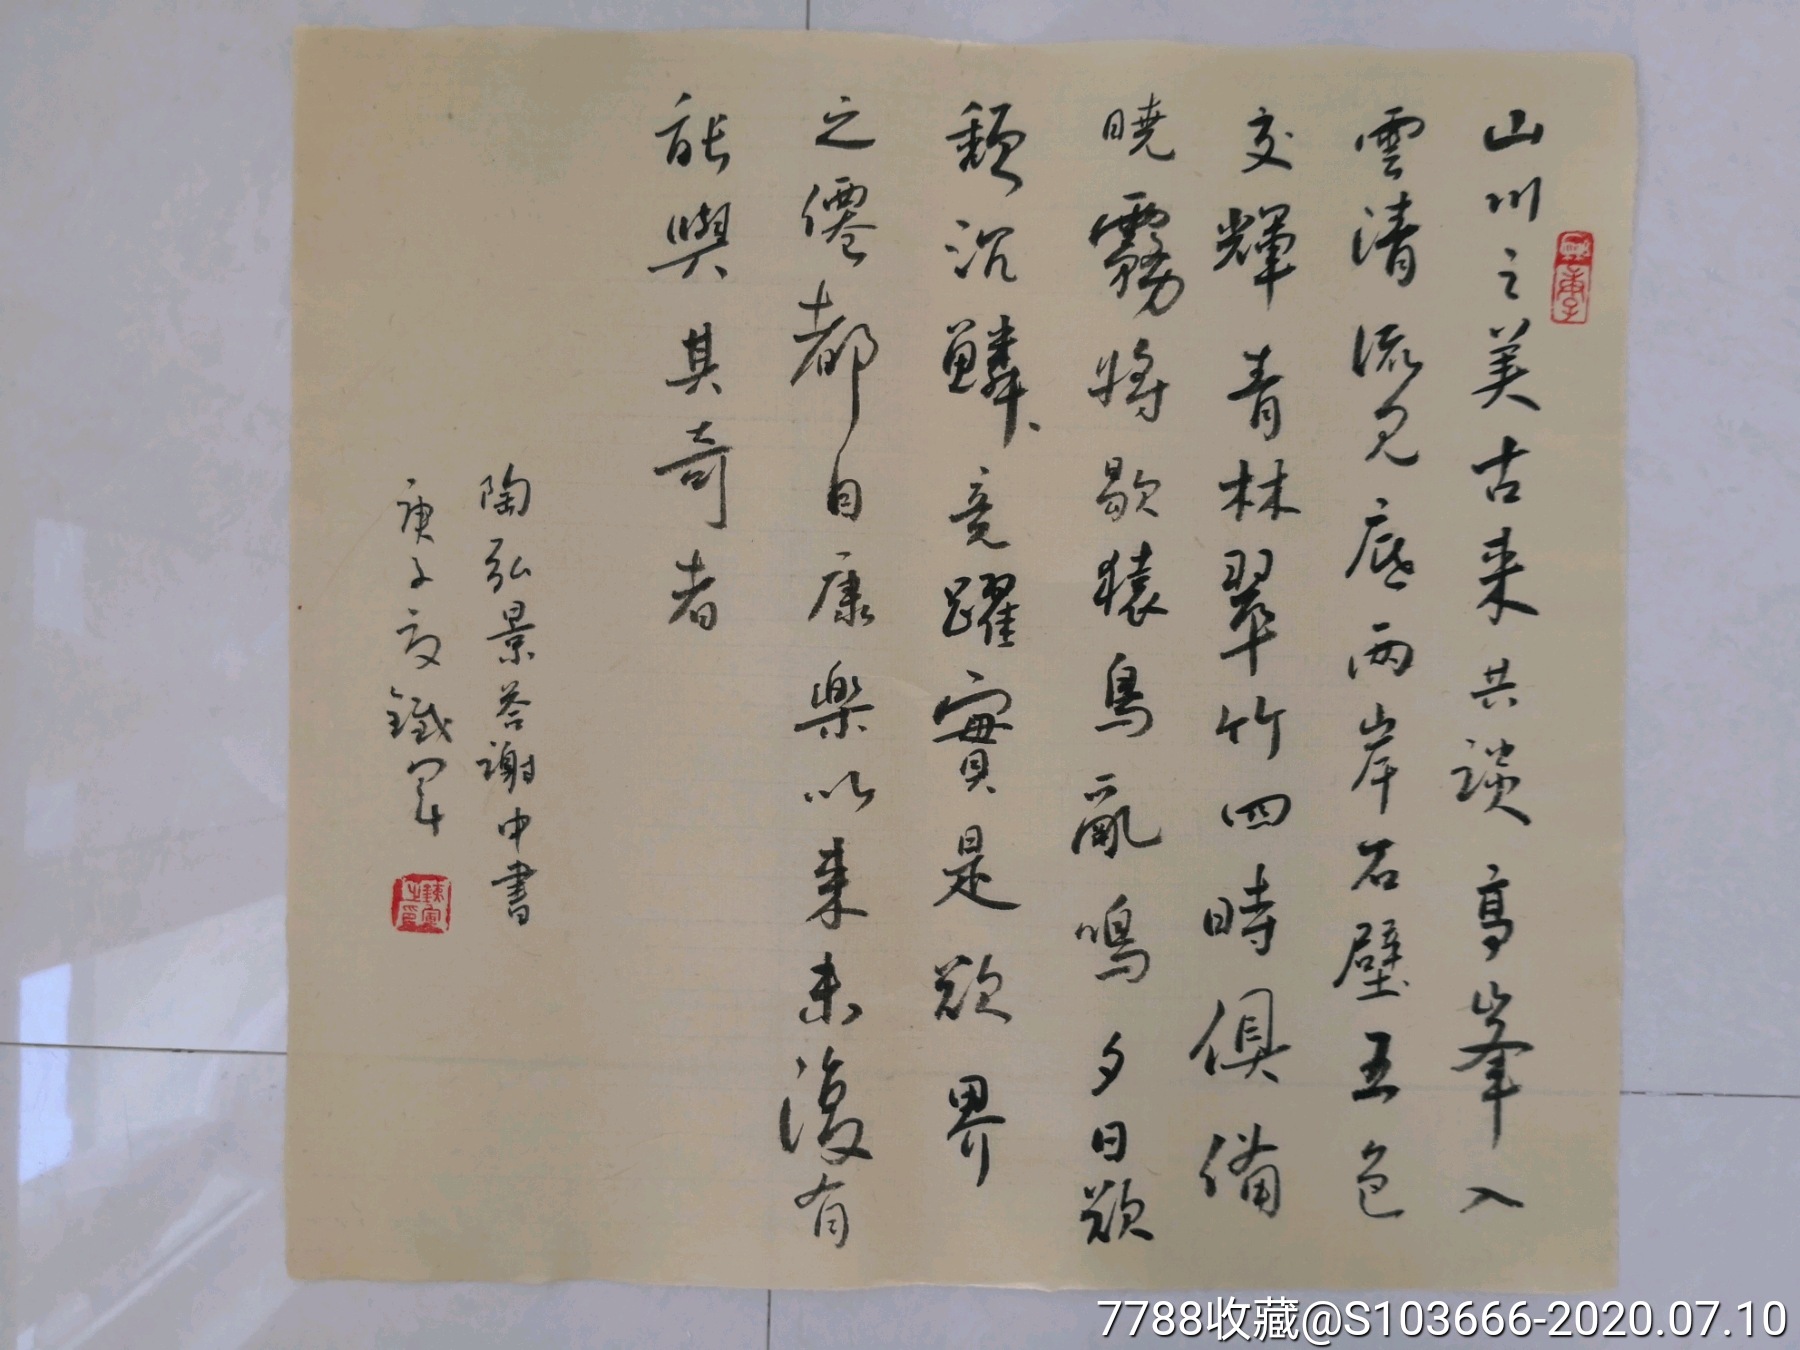 山川之美古来共談高峯入
雲清流見底兩岸石壁五色
交輝青林翠竹四時俱備
曉霧將歇猿鳥亂鳴夕日欲
頹沉鱗竞躍實是欲界
之僊都自康樂以来未復有
能與其奇者
陶弘景荅謝中書
庚子夏鐵軍
7788收藏@S103666-2020.07.10